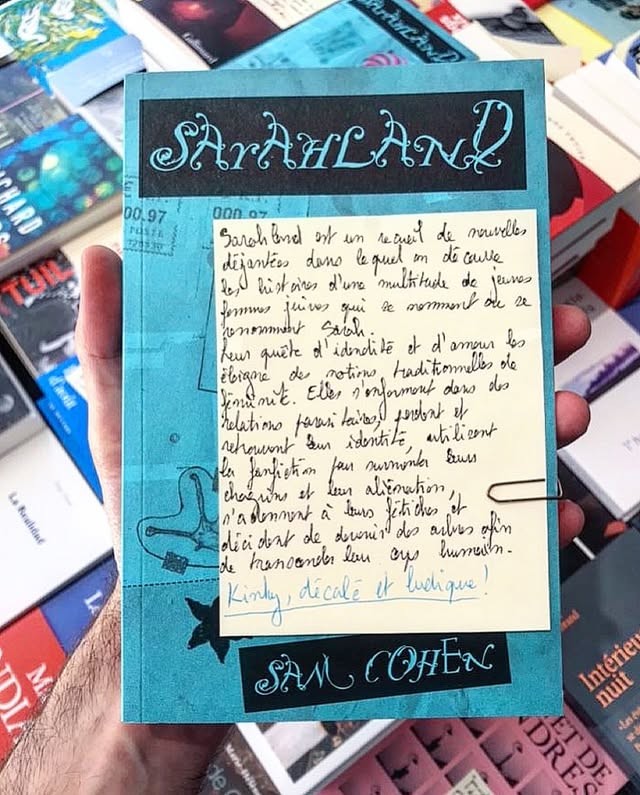 SArAHLAND
SArAHLAND
000.97
POSTE
000.97
Sarahland est un recueil de nouvelles
déjantées dans lequel on découvre
les histoires d'une multitude de jeunes
femmes juives qui se nomment ou se
renomment Sarah.
Leur quête d'identité et d'amour les
éloigne des notions traditionnelles de
féminité. Elles s'enferment dans des
relations parasitaires, perdent et
retrouvent leur identité, utilisent
la fanfiction pour surmonter leurs
chagrins et leur aliénation,
s'adonnent à leurs fétiches et
décident de devenir des arbres afin
de transcender leur corps humain.
Kinky, décalé et ludique !
SAM COHEN
Gallimard
Intérieur
nuit
ET DE